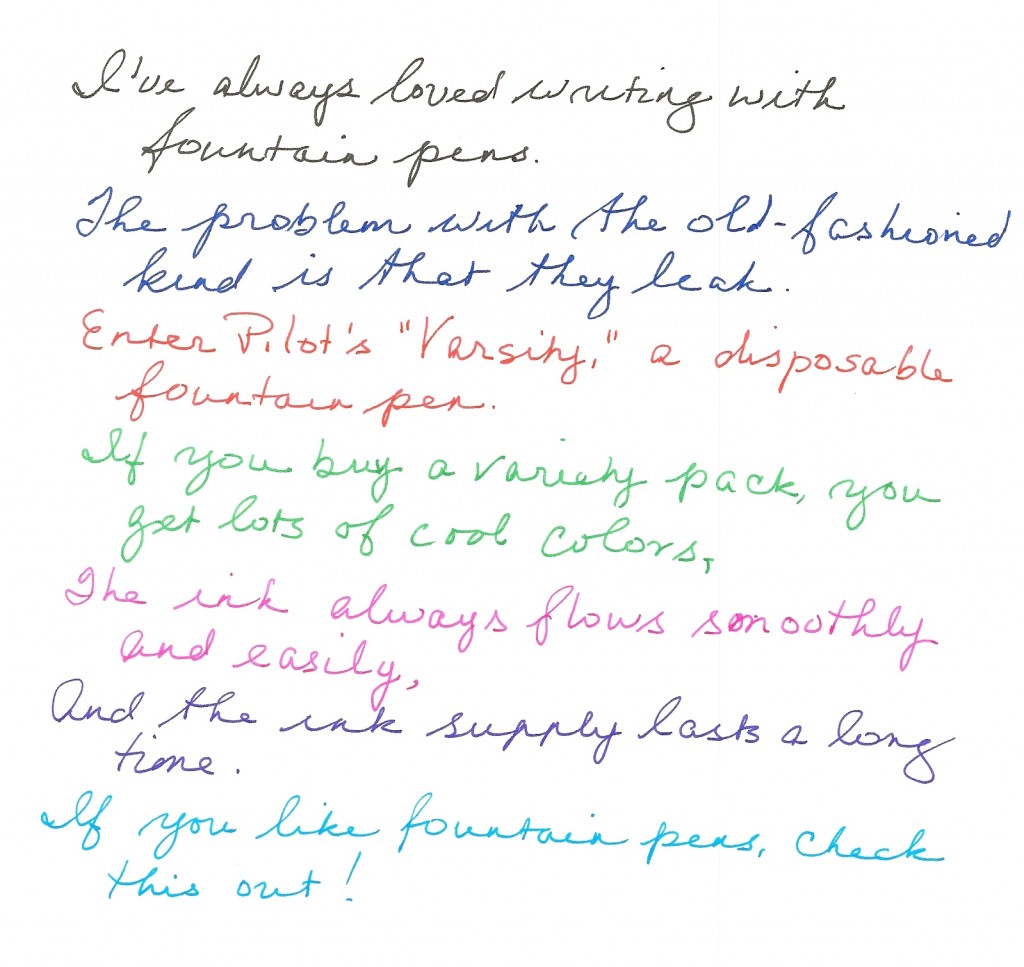 I've always loved writing with
fountain pens.
The problem with the old-fashioned
kind is that they leak.
Enter Pilot's "Varsity," a disposable
fountain pen.
If you buy a variety pack, you
get lots of cool colors,
The ink always flows smoothly
and easily,
And the ink supply lasts a long
time.
If you like fountain pens, check
this out!